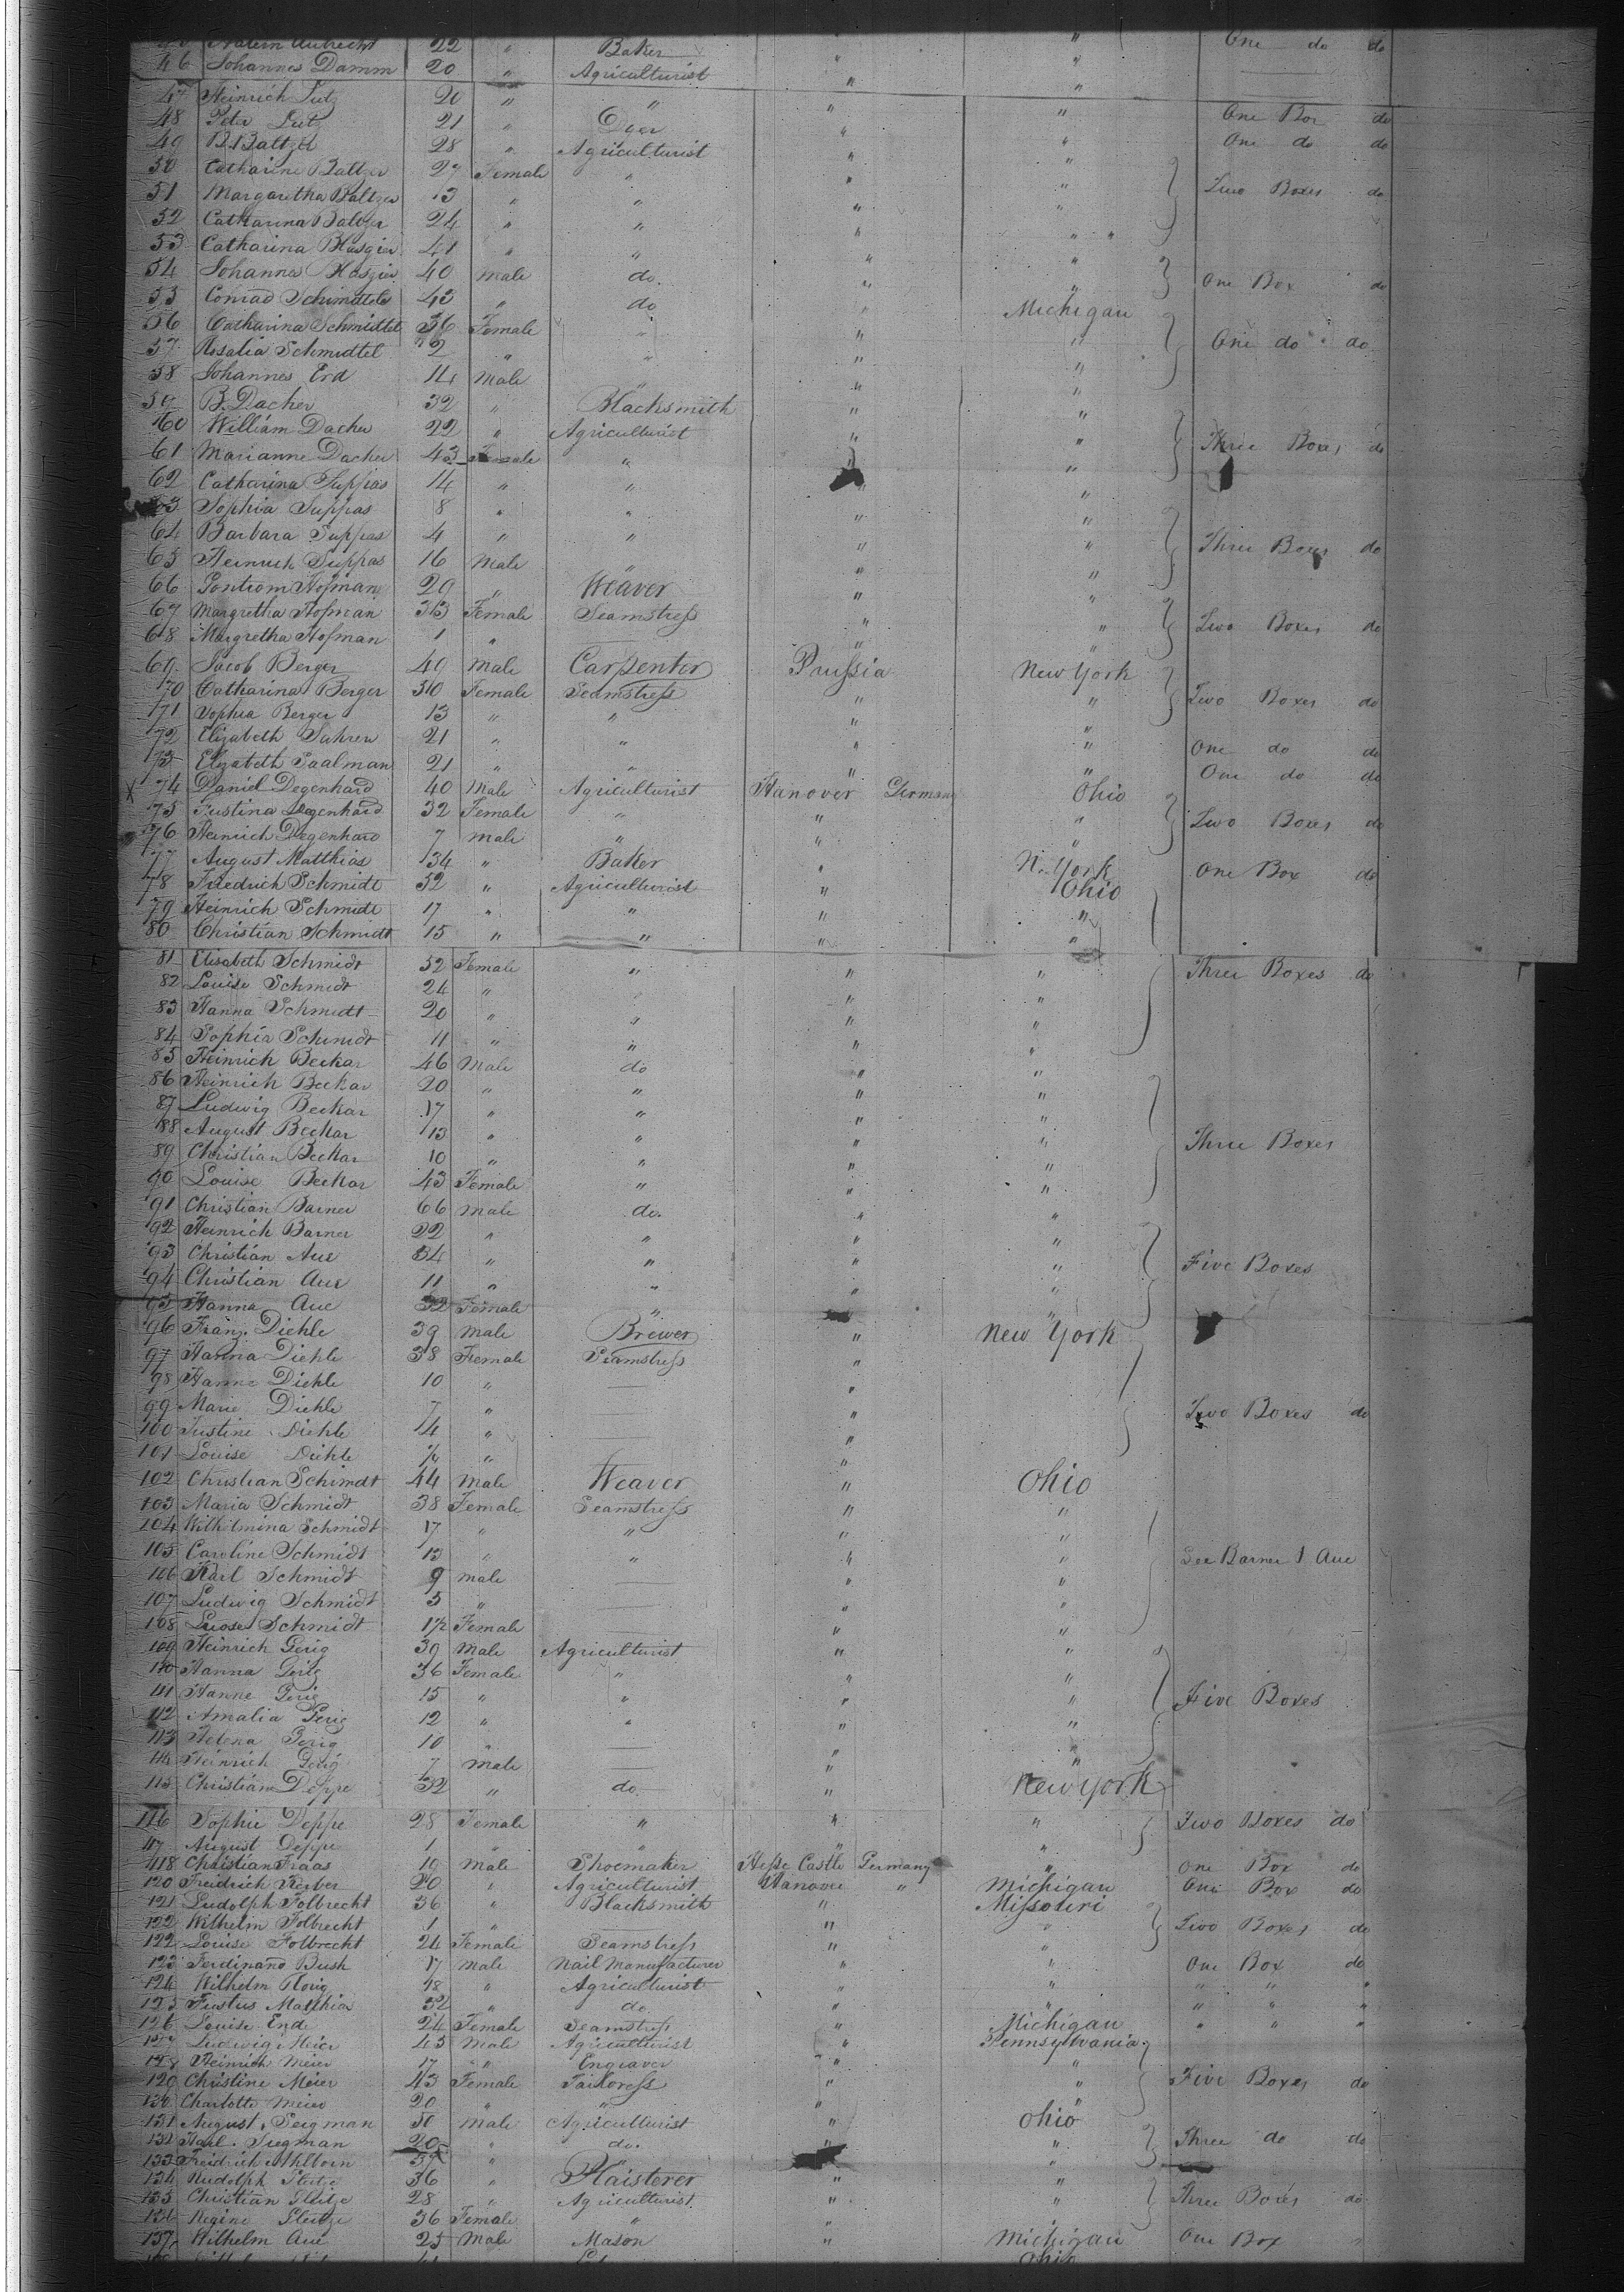 Aubrecht 22 " Baker " " One do do
46 Johannes Damm 20 " Agriculturist " "
47 Heinrich Lutz 20 " " " "
48 Peter Lutz 21 " Dyer " " One Box do
49 B. Baltzer 28 " Agriculturist " " One do do
50 Catharine Baltzer 27 Female " " "
51 Margaretha Baltzer 13 " " " " Two Boxes do
52 Catharina Baltzer 24 " " " "
53 Catharina Blasgier 41 " " " "
54 Johannes Blasgier 40 Male do. " " One Box do
55 Conrad Schmidtel 43 " do " Michigan
56 Catharina Schmidtel 36 Female " " " One do do
57 Rosalia Schmidtel 2 " " " "
58 Johannes Erd 14 Male " " "
59 B. Dacher 32 " Blacksmith " "
60 William Dacher 22 " Agriculturist " " Three Boxes do
61 Marianne Dacher 43 Female " " "
62 Catharina Suppas 14 " " " "
63 Sophia Suppas 8 " " " "
64 Barbara Suppas 4 " " " " Three Boxes do
65 Heinrich Suppas 16 Male " " "
66 Hofman 29 " Weaver " "
67 Margretha Hofman 33 Female Seamstress " " Two Boxes do
68 Margretha Hofman 1 " — " "
69 Jacob Berger 40 Male Carpenter Prussia New York
70 Catharina Berger 30 Female Seamstress " " Two Boxes do
71 Sophia Berger 13 " " " "
72 Elizabeth Sahren 21 " " " " One do do
73 Elyzabeth Saalman 21 " " " " One do do
X 74 Daniel Degenhard 40 Male Agriculturist Hanover Germany Ohio
75 Justina Degenhard 32 Female " " " Two Boxes do
76 Heinrich Degenhard 7 male " " "
77 August Matthias 34 " Baker " N. York One Box do
78 Friedrich Schmidt 52 " Agriculturist " Ohio
79 Heinrich Schmidt 17 " " " "
80 Christian Schmidt 15 " " " "
81 Elisabeth Schmidt 52 Female " " " Three Boxes do
82 Louise Schmidt 24 " " " "
83 Hanna Schmidt 20 " " " "
84 Sophia Schmidt 11 " " " "
85 Heinrich Beckar 46 Male do " "
86 Heinrich Beckar 20 " " " "
87 Ludwig Beckar 17 " " " "
88 August Beckar 13 " " " " Three Boxes
89 Christian Beckar 10 " " " "
90 Louise Beckar 43 Female " " "
91 Christian Barner 66 Male do. " "
92 Heinrich Barner 22 " " " "
93 Christian Aue 34 " " " " Five Boxes
94 Christian Aue 11 " " " "
95 Hanna Aue 32 Female " " "
96 Franz Diehle 39 Male Brewer " New York
97 Hanna Diehle 38 Female Seamstress "
98 Hanne Diehle 10 " — "
99 Marie Diehle 7 " — " Two Boxes do
100 Justine Diehle 4 " — "
101 Louise Diehle " — "
102 Christian Schimdt 44 Male Weaver " Ohio
103 Maria Schmidt 38 Female Seamstress " "
104 Wilhilmina Schmidt 17 " " " "
105 Caroline Schmidt 13 " " " " See Barner & Aue
106 Karl Schmidt 9 male — " "
107 Ludwig Schmidt 5 " — " "
108 Luose Schmidt 1½ Female — " "
109 Heinrich Gerig 39 Male Agriculturist " "
110 Hanna Gerig 36 Female " " "
111 Hanne Gerig 15 " " " " Five Boxes
112 Amalia Gerig 12 " " " "
113 Helena Gerig 10 " — " "
114 Heinrich Gerig 7 Male — " "
115 Christian Deppe 32 " do " New York
116 Sophie Deppe 28 Female " " " Two Boxes do
117 August Deppe 1 " " " "
118 Christian Fraas 19 Male Shoemaker Hesse Castle Germany " One Box do
120 Freidrich Kerber 20 " Agriculturist Hanover " Michigan One Box do
121 Ludolph Folbrecht 36 " Blacksmith " Missouri
122 Wilhelm Folbrecht 1 " — " " Two Boxes do
122 Louise Folbrecht 24 Female Seamstress " "
123 Ferdinand Bush 17 Male Nail Manufacturer " " One Box do
124 Wilhelm 18 " Agriculturist " " " " "
125 Justus Matthias 32 " do " " " " "
126 Louise Ende 24 Female Seamstress " Michigan " " "
127 Ludwig Meier 45 Male Agriculturist " Pennsylvania
128 Heinrich Meier 17 " Engraver " "
129 Christine Meier 43 Female Tailoress " " Five Boxes do
130 Charlotte Meier 20 " " " "
131 August Seigman 50 Male Agriculturist " Ohio
132 Karl Siegman 20 " do. " " Three do do
133 Freidrich Ahlborn 39 " "
134 Rudolph 36 " Plaisterer " "
135 Christian 28 " Agriculturist " " Three Boxes do
136 Regine 36 Female " " "
137 Wilhelm Aue 25 Male Mason " Michigan One Box "
Ohio